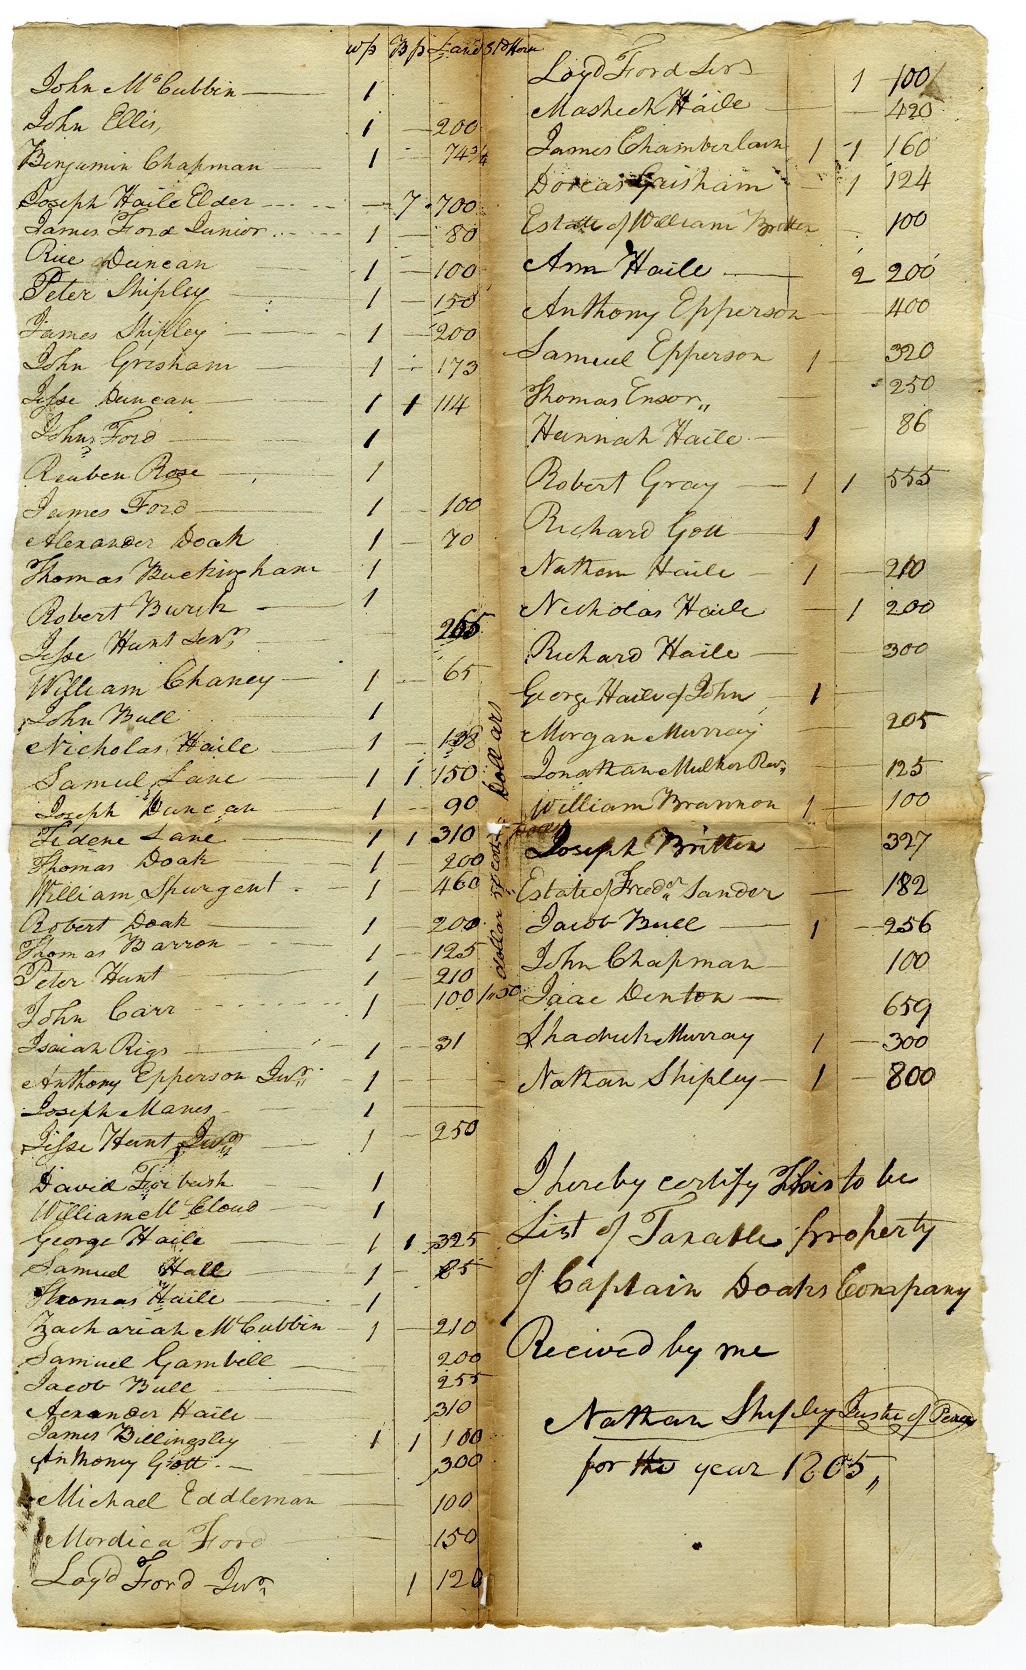 wp Bp Land StdHorn
John McCubbin 1
John Ellis, 1 200
Benjamin Chapman 1 74 3/4
Joseph Haile Elder 7 700
James Ford Junior 1 80
Rice Duncan 1 100
Peter Shipley 1 150
James Shipley 1 200
John Grisham 1 173
Jesse Duncan 1 1 114
John Ford 1
Reuben Rose 1
James Ford 1 100
Alexander Doak 1 70
Thomas Buckingham 1
Robert Burk 1
Jesse Hunt Senr
William Chaney 1 65
John Bull 1
Nicholas Haile 1 138
Samuel Lane 1 1 150
Joseph Duncan 1 90
Tidene Lane 1 1 310
Thomas Doak 200
William Spurgent 1 460
Robert Doak 1 200
Thomas Barron 1 125
Peter Hunt 1 210
John Carr 1 100 1..50 dollar dollars
Isaiah Rigs 1 31
Anthony Epperson Junr 1
Joseph Manes 1
Jesse Hunt Junr 1 250
David Forbush 1
William McCloud 1
George Haile 1 1 325
Samuel Hall 1 85
Thomas Haile 1
Zachariah McCubbin 1 210
Samuel Gambell 200
Jacob Bull 255
Aexander Haile 310
James Billingsley 1 1 100
Anthoney Gott 300
Michael Eddleman 100
Mordica Ford 150
Loyd Ford Junr 1 120
Loyd Ford Senr 1 100
Mashech Haile 420
James Chamberlain 1 1 160
Dorcas Grisham 1 124
Estate of William Britten 100
Ann Haile 2 200
Anthony Epperson 400
Samuel Epperson 1 320
Thomas Ensor 250
Hannah Haile 86
Robert Gray 1 1 555
Richard Gott 1
Nathan Haile 1 210
Nicholas Haile 1 200
Richard Haile 300
George Haile of John 1
Morgan Murray 205
Jonathan Mulkey Revr 125
William Brannon 1 100
Joseph Britten 327
Estate of Fredr Sander 182
Jacob Bull 1 256
John Chapman 100
Isaac Denton 659
Shadrick Murray 1 300
Nathan Shipley 1 800
I hereby certify this to be
List of Taxable property
of Captain Doaks Company
Recived by me
Nathan Shipley Justice of Peace
for the year 1805,,